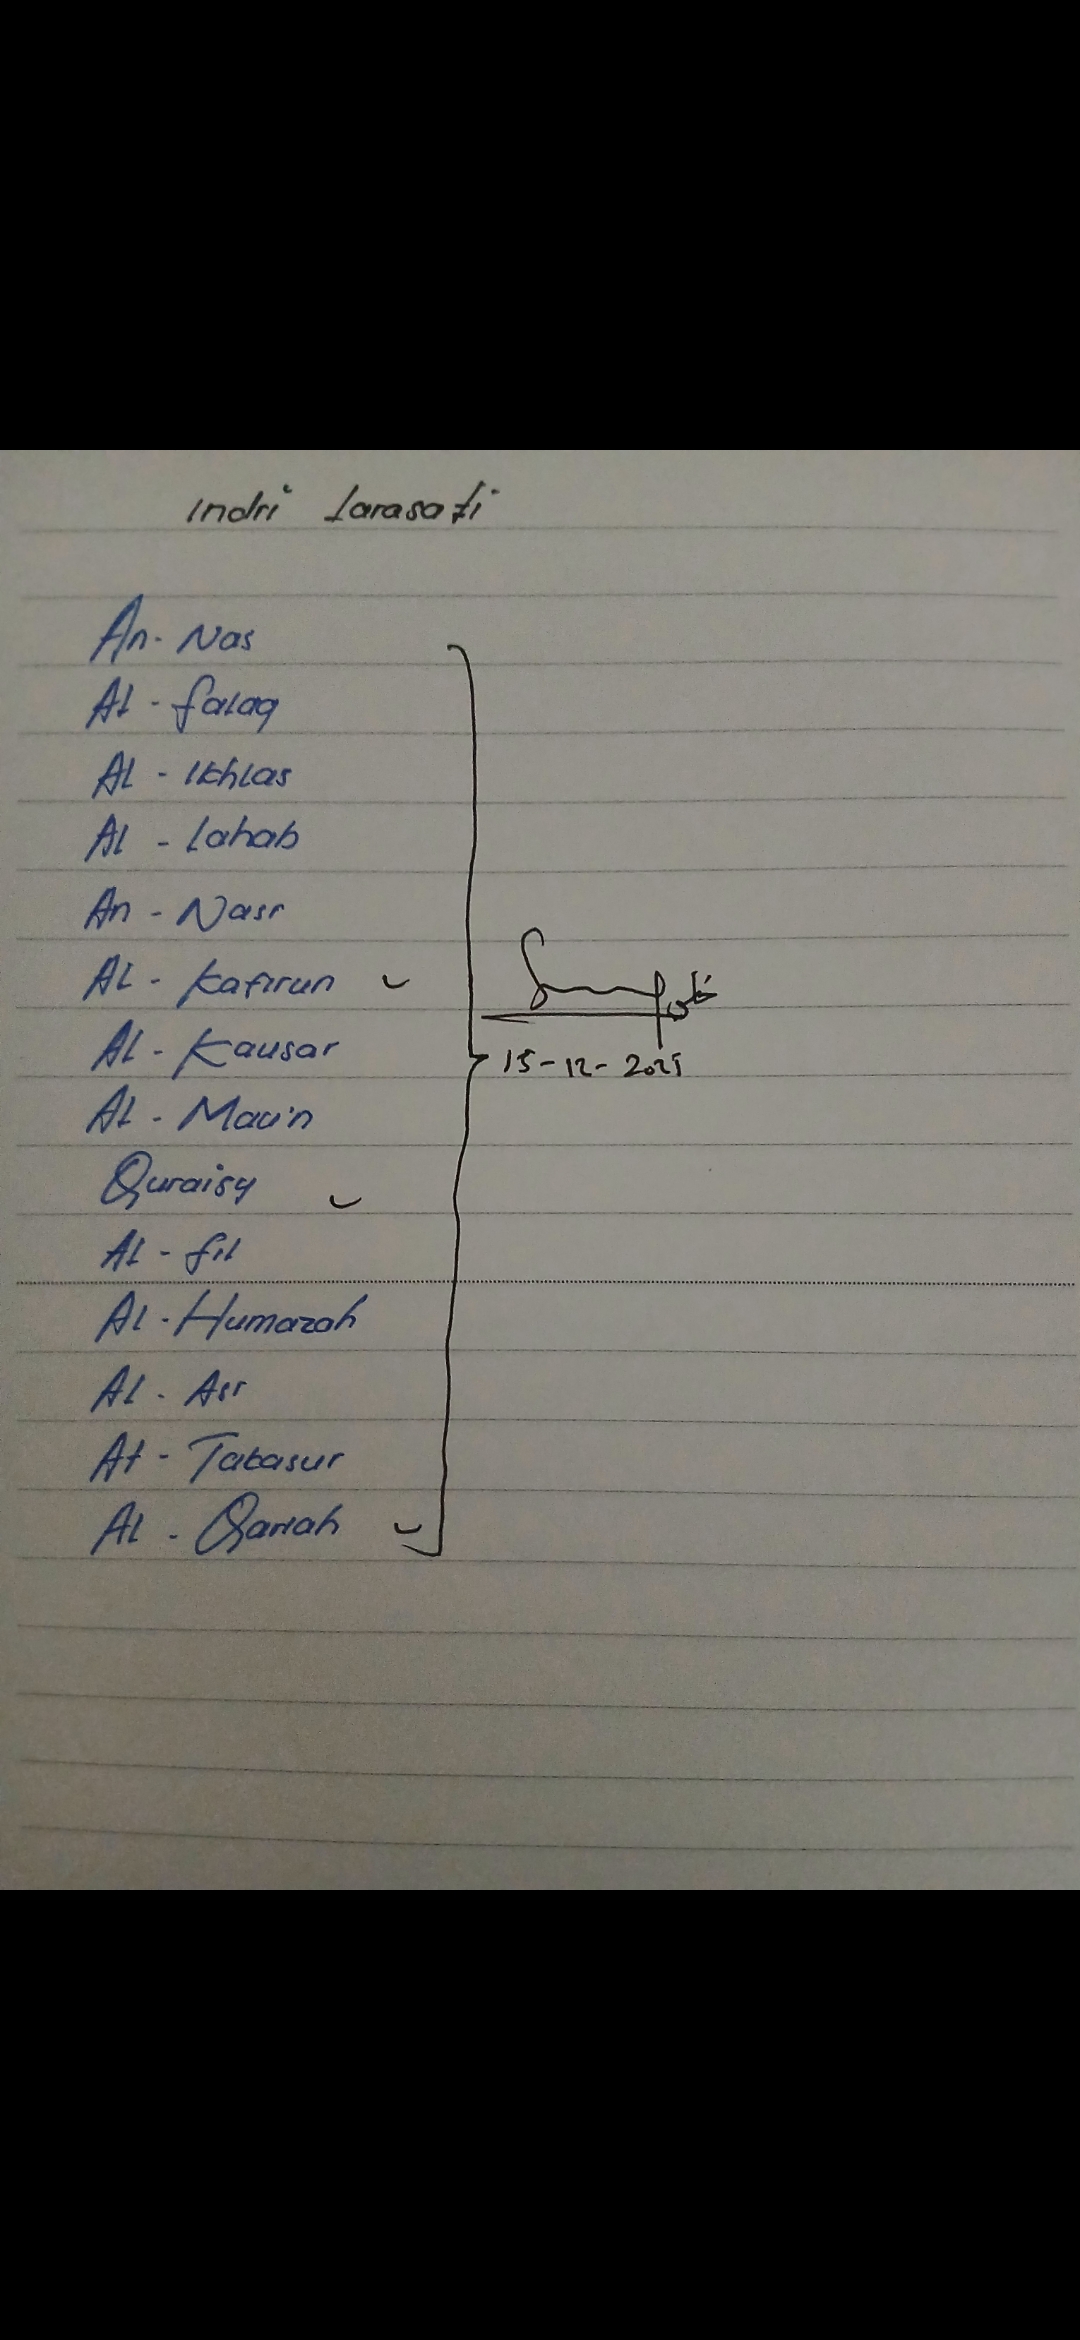 Indri Larasati
An-Nas
Al-falaq
Al-Ikhlas
Al-Lahab
An-Nasr
Al-Kafirun
Al-Kausar
Al-Mau'n
Quraisy
Al-fil
Al-Humazah
Al-Asr
At-Takasur
Al-Qariah
15-12-2025